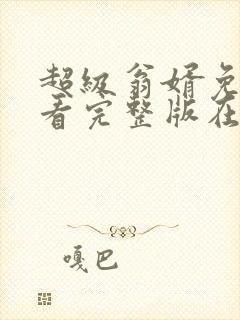 超级翁婿免
看完整版在
嘎巴